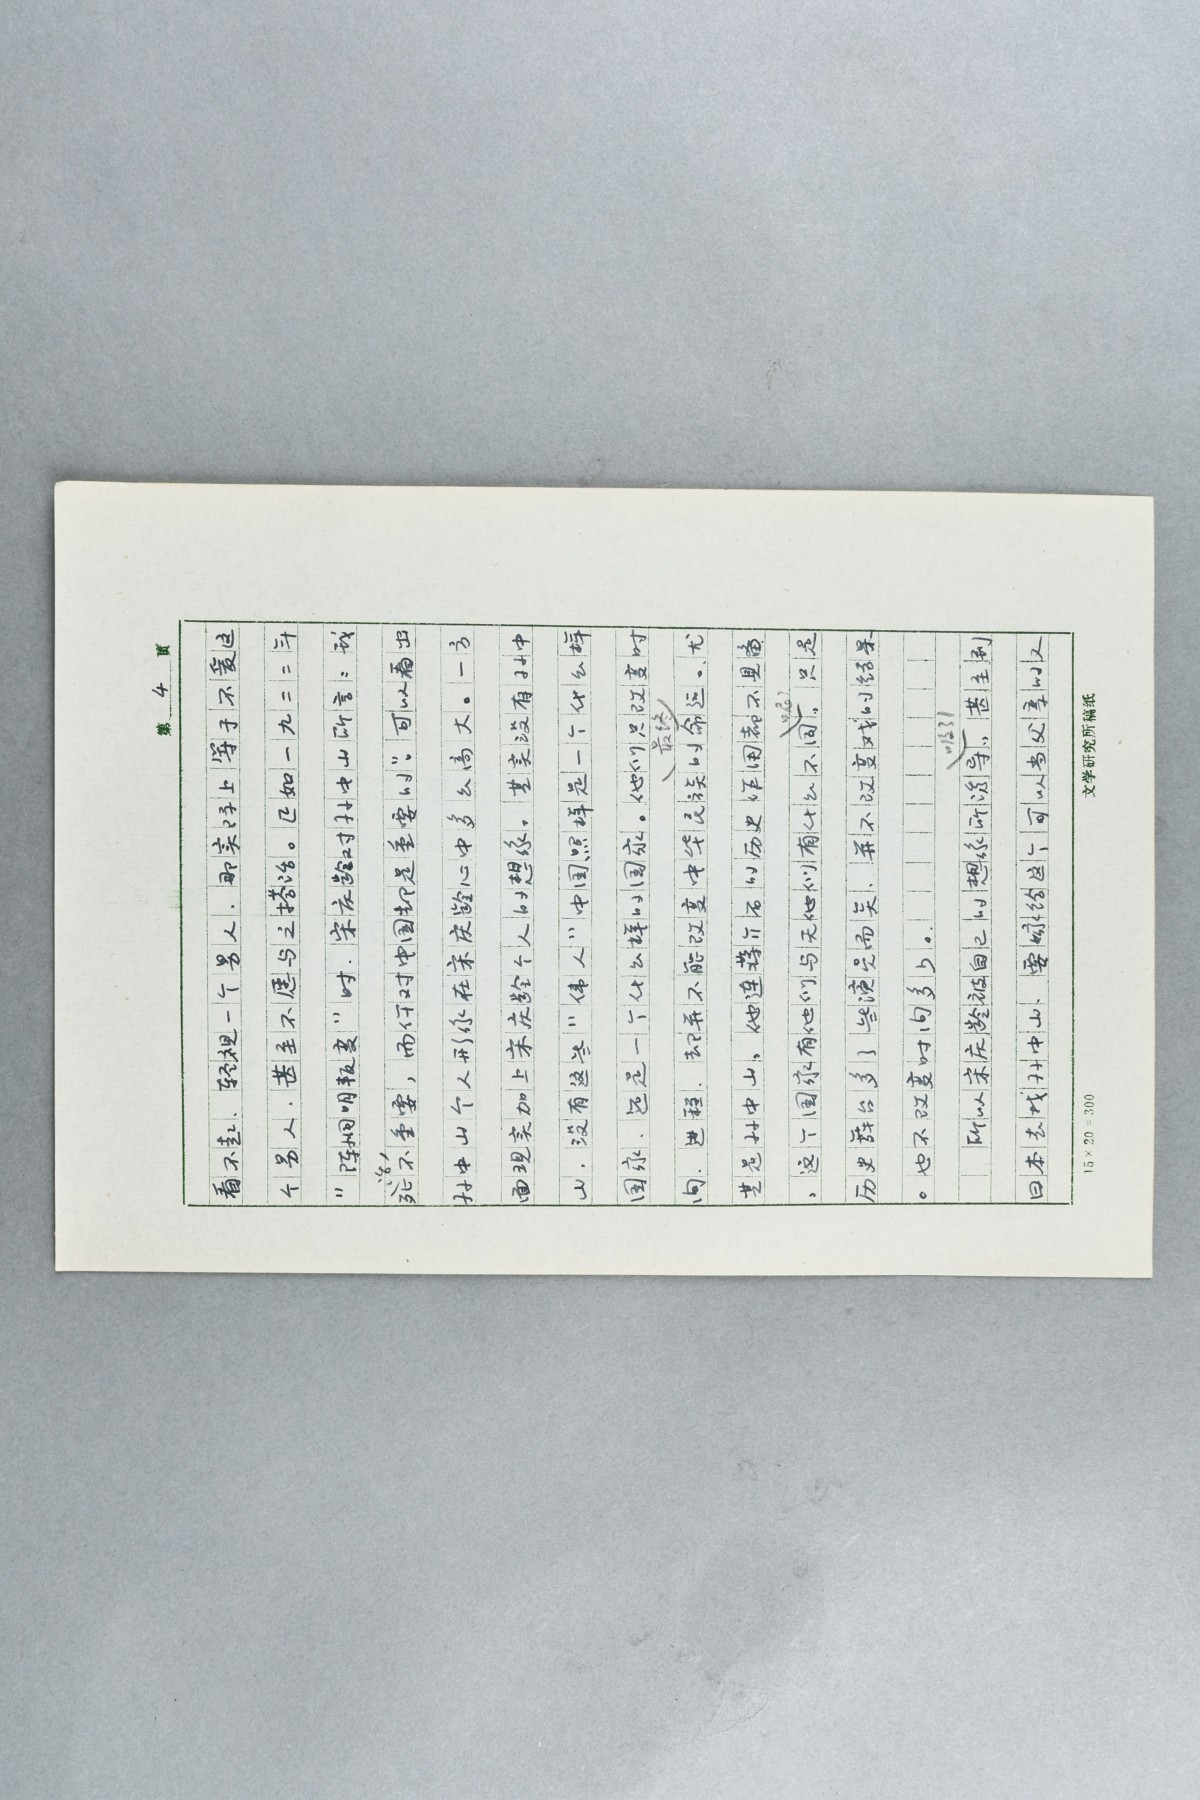 第 4 页
看不起、轻视一个男人，那实际上等于不爱这
个男人，甚至不愿与之搭话。正如一九二二年
“陈炯明叛变”时，宋庆龄对孙中山所言：我
死活不重要，而你对中国却是重要的”；可以看出
孙中山个人形象在宋庆龄心中多么高大。一方
面现实加上宋庆龄个人的想象，其实没有孙中
山，没有这些“伟人”中国照样是一个什么样
国家，还是一个什么样的国家。他们只改变时
间、进程，却并不能改变中华民族的最终命运、尤
其是孙中山，他连蒋介石的历史作用都不具备
，这个国家有他们与无他们有什么不同呢？只是
历史舞台多了些演员而矣，并不改变戏的结果
。也不改变时间多少。
所以宋庆龄被自己的想象所诱导，甚至到
日本去找孙中山、要嫁给这个可以当父亲的又
15×20=300
文学研究所稿纸